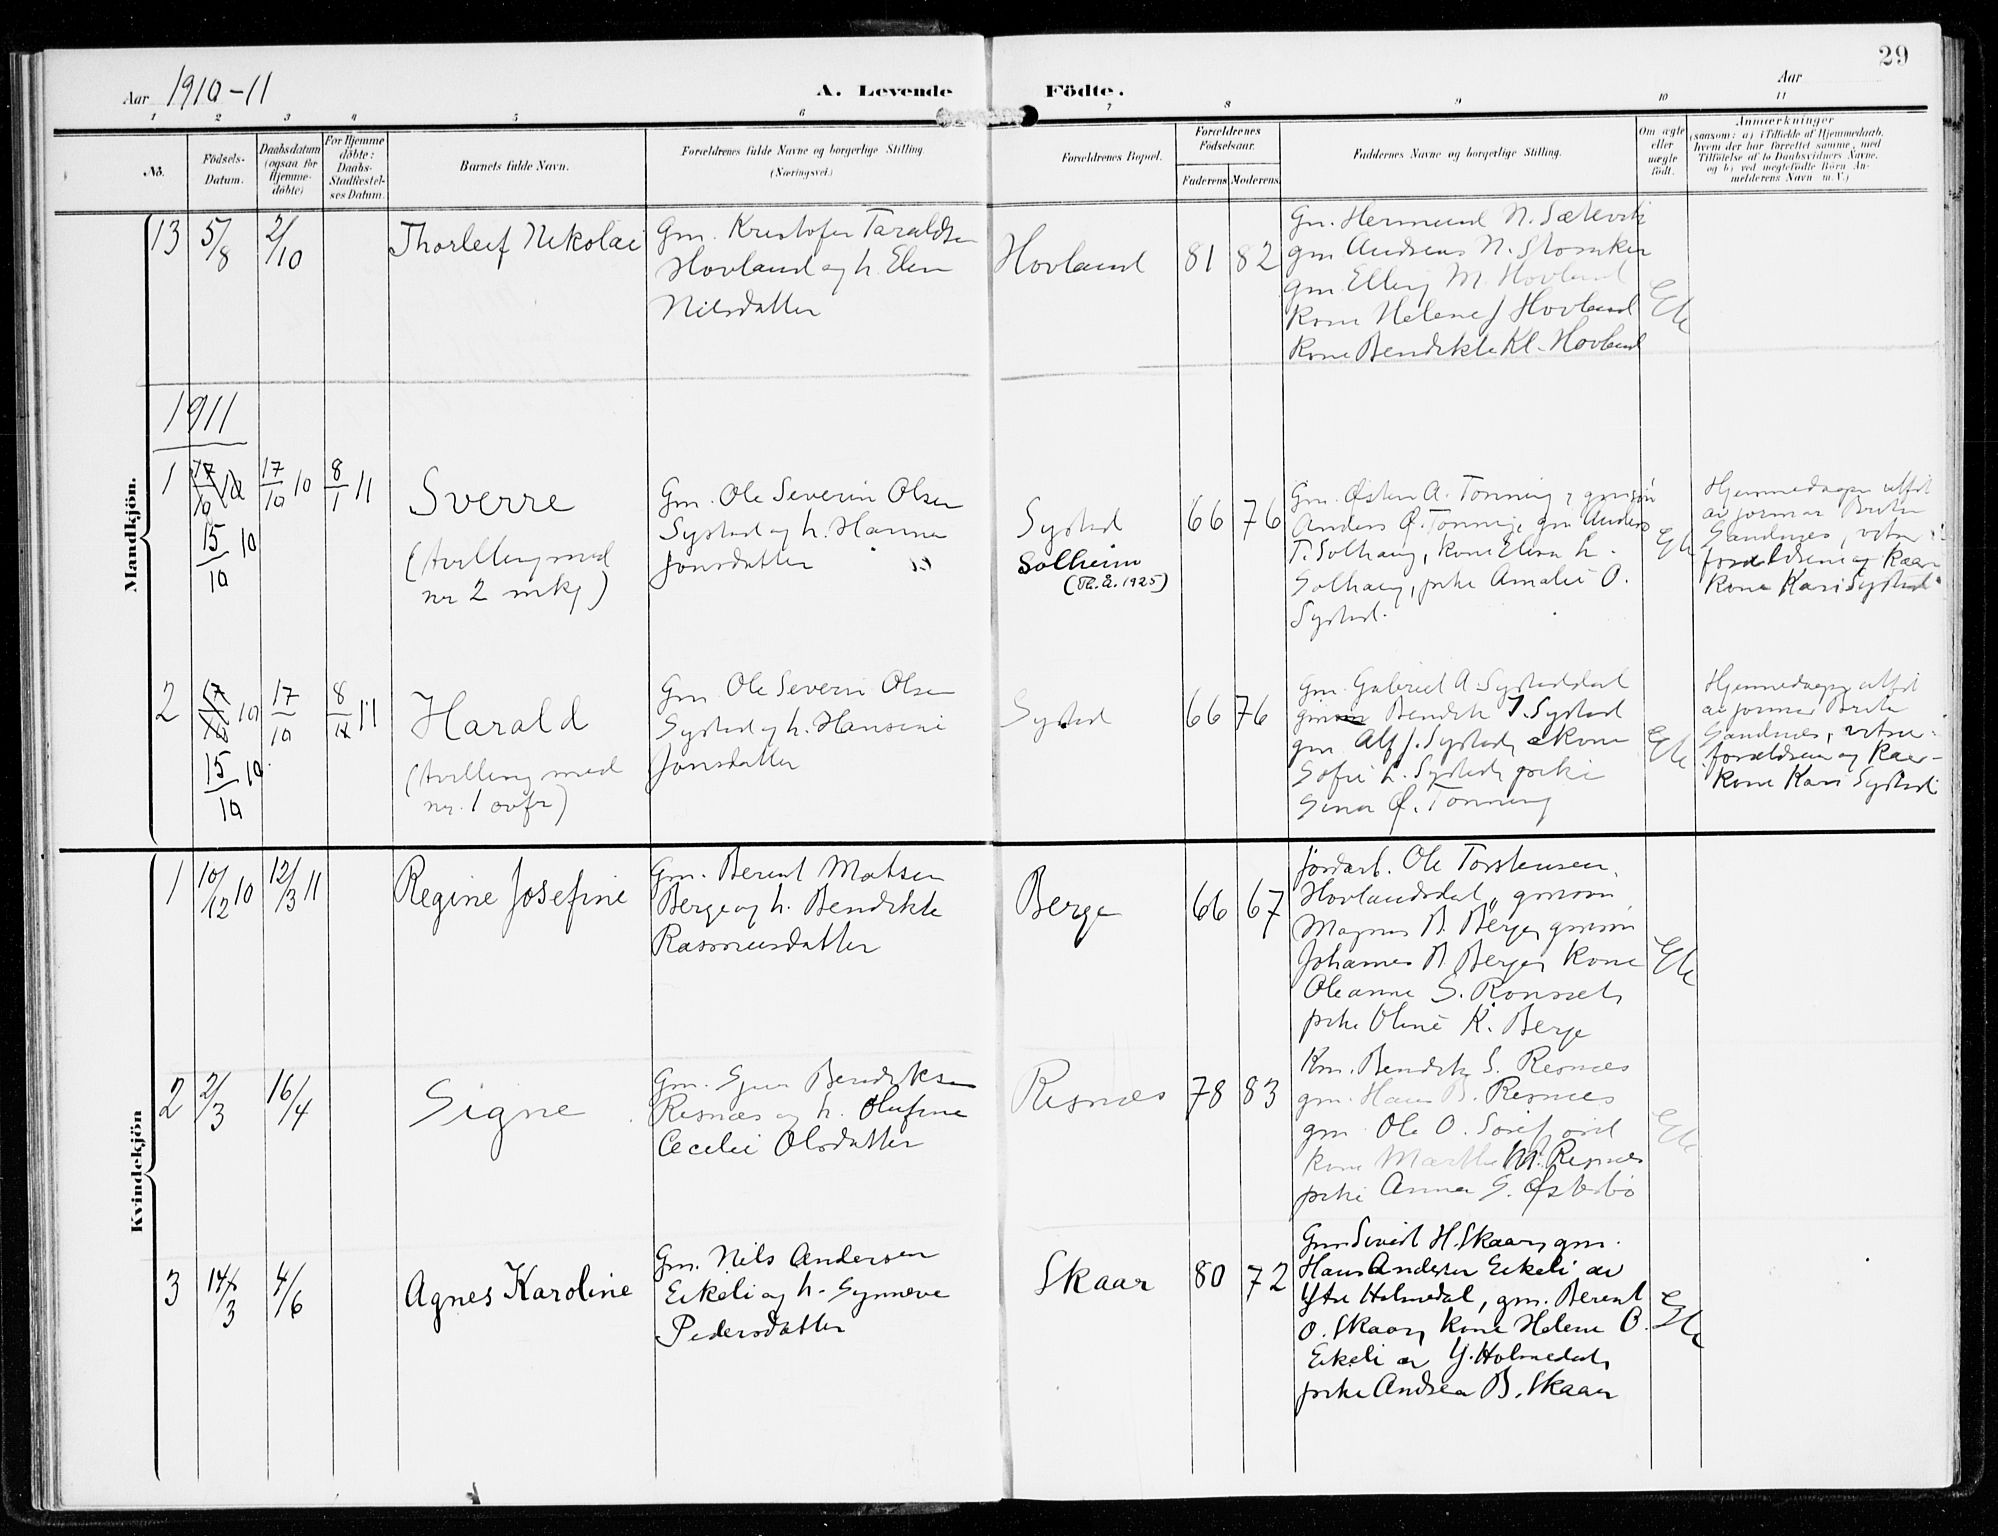 29
Aar 1910-11
A. Levende Födte.
Aar
1 2 3 4 5 6 7 8 9 10 11
No.
Födsels-
Datum.
Daabsdatum
(ogsaa for
Hjemme-
döbte)
For Hjemme
döbte:
Daabs-
Stadfæstel-
ses Datum.
Barnets fulde Navn.
Forældrenes fulde Navne og borgerlige Stilling
(Næringsvei.)
Forældrenes Bopæl.
Forældrenes
Födselsaar.
Faderens
Moderens
Faddernes Navne og borgerlige Stilling.
Om ægte
eller
uægte
födt.
Anmærkninger
(saasom: a) i Tilfælde af Hjemmedaab,
hvem der har forrettet samme, med
Tilföielse af to Daabsvidners Navne,
og b) ved uegtefödte Börn An-
melderens Navn m. V.)
Mandkjön.
13
5/8
2/10
Thorleif Nikolai
Gm. Kristofer Taraldsen
Hovland og h. Elen
Nilsdatter
Hovland
81
82
Gm. Hermund N. Sætevik
gm Andreas N.
gm. Elling M. Hovland
kone Helene J Hovland
kone Bendikte Kl. Hovland
Egte
1911
1
17/10 10
15/10 10
17/10 10
8/1 11
Sverre
(tvilling med
nr 2 mkj)
Gm. Ole Severin Olsen
Systad og h. Hansine
Jonsdatter
Systad
Solheim
(Th. å. 1925)
66
76
Gm. Østen A. Tonning, gmsøn
Anders Ø. Tonning, gm Anders
T. Solhaug, kone Elina L.
Solhaug, pike Amalie O.
Systad.
Egte
Hjemmedaapen utført
av jormor Brita
Sandnes, vitner:
forældrene og kaar-
kone Kari Systad
2
17/10 10
15/10 10
17/10
8/1 11
Harald
(tvilling med
nr. 1 ovfr)
Gm. Ole Severin Olsen
Systad og h. Hansine
Jonsdatter
Systad
66
76
Gm. Gabriel A. Systaddal
gm Bendik I. Systad
gm. Alf J. Systad, kone
Sofie L. Systad, pike
Sina Ø. Tonning
Egte
Hjemmedaapen utført
av jormor Brita
Sandnes, vitner:
forældrene og kaar-
kone Kari Systad
Kvindekjön
1
10/12 10
12/3 11
Regine Josefine
Gm. Berent Matsen
Berge og h. Bendikte
Rasmusdatter
Berge
66
67
Jordarb. Ole Torstensen
Hovlandsdal, gmsøn
Magnus B. Berge, gmsøn
Johannes B. Berge, kone
Oleanne S.
pike Oline K. Berge
Egte
2
2/3
16/4
Signe
Gm. Bendiksen
Risnæs og h. Olufine
Cecilie Olsdatter
Risnæs
78
83
Km. Bendik S. Risnæs
gm. Hans B. Risnæs
gm Ole O. Sørefjord
kone Marthe M. Risnæs
pike Anna S. Østerbø
Egte
3
14/3
4/6
Agnes Karoline
Gm. Nils Andersen
Eikeli og h. Synneve
Pedersdatter
Skaar
80
72
Gm Sivert H. Skaar, gm.
Hans Andersen Eikeli av
Ytre Holmedal, gm. Berent
O. Skaar, kone Helene B.
Eikeli av Y. Holmedal,
pike Andrea B. Skaar
Egte